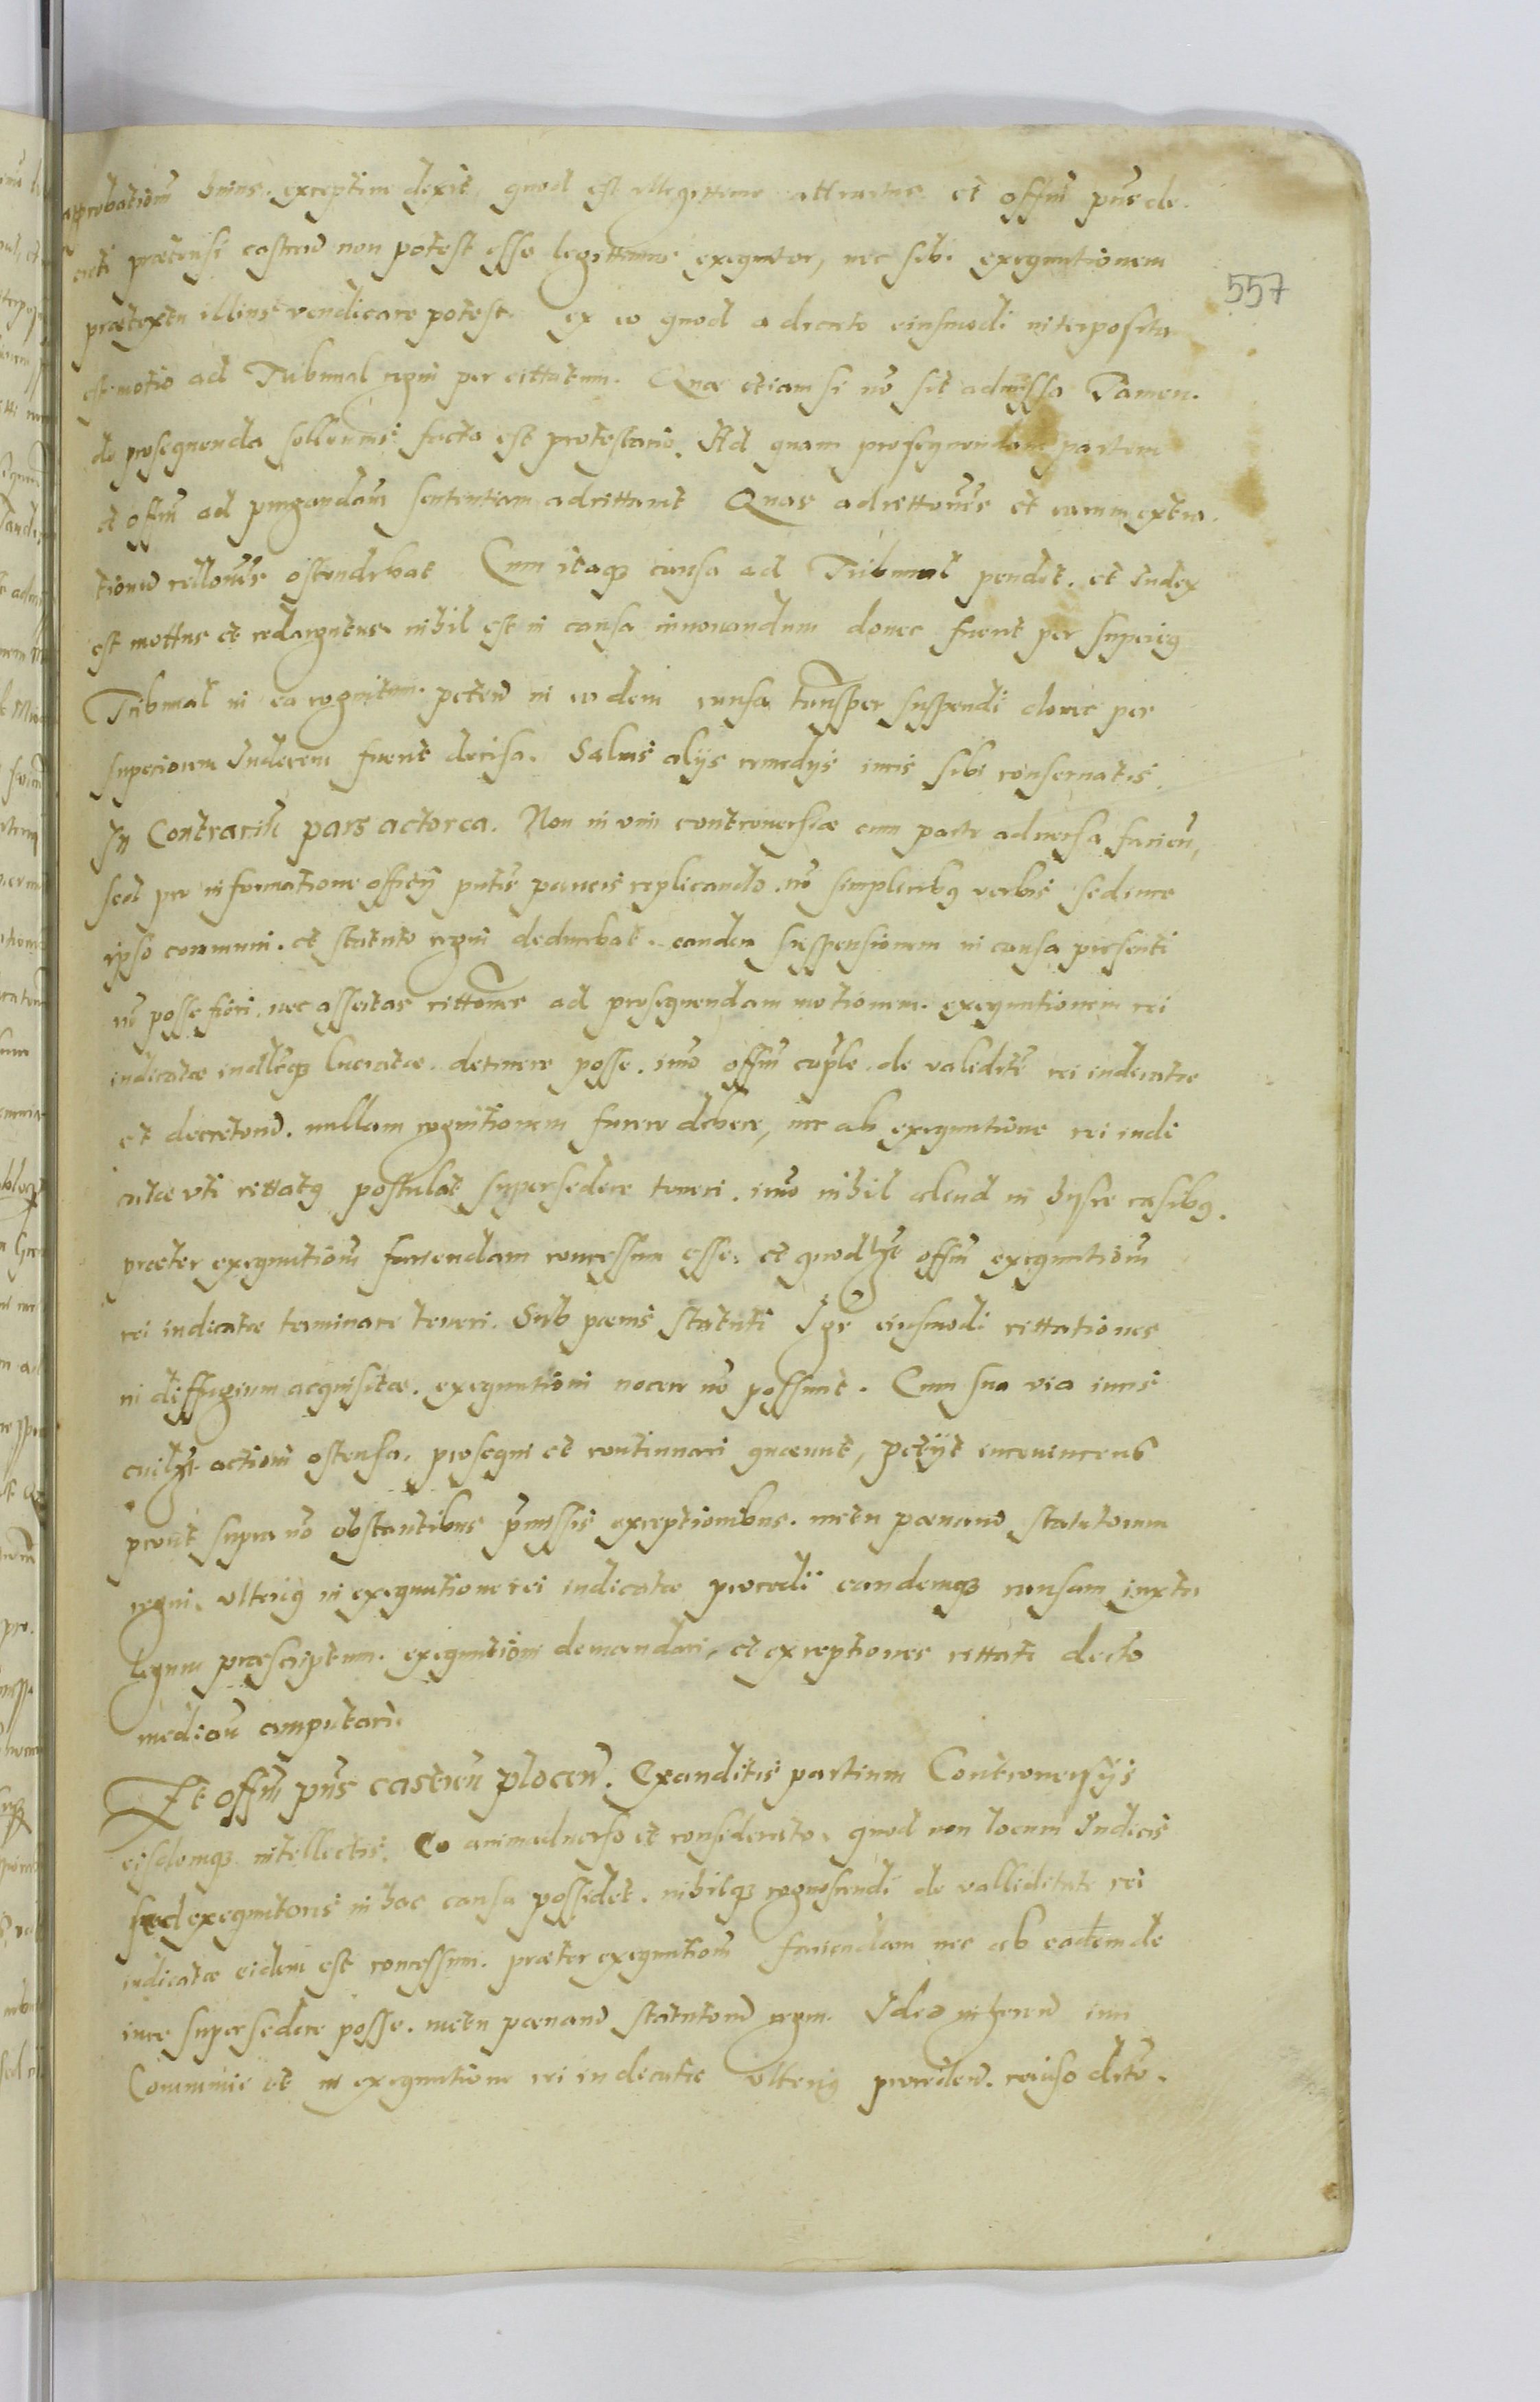 approbationem huius. exceptive dixit, quod est illegittime attentus et offm pns de
creti prætensi castren non potest esse legittimus exequtor, nec sibi exequutionem
prætextu illius vendicare potest. ex eo quod a decreto eiusmodi interposita
est motio ad Tribunal regni per cittatum. Quæ etiam si no sit admissa Tamen.
de prosequenda sollennis facta est protestatio. Ad quam prosequendam partem
et offm ad purgandam sententiam adcittavit Quas adcittones et earum extra.
tionum rellones ostendebat Cum itaqz causa ad Tribunal pendet. et Iudex
est mottus et redargutus. nihil est in causa innouandum donec fuerit per superig
Tribunal in ea cognitum. peten in eodem causa tansper suspendi donec per
superiorem Iudicem fuerit decisa. Saluis alijs remedijs iuris sibi conseruatis.
In Contrarium pars actorea. Non in vim controuersiæ cum parte aduersa facien,
sed pro informatione officij pntis paucis replicando. no simplicibq verbis sed iure
ipso communi. et statuto regni deducebat. eandem suspensionem in causa presenti
no posse fieri, nec assertas cittones ad prosequendam motionem. exequutionem rei
iudicatæ lucratæ. detinere posse. imo offm cuple. de validite rei iudicatæ
et decretorum. nullam cognitionem facere debere, nec ab exequutione rei iudi
catæ vti cittatq postulat supersedere teneri. imo nihil aliud in hijsce casibq.
præter exequutionem faciendam concessum esse. et quodlzt offm exequutionem
rei iudicatæ terminare teneri. Sub pœnis statuti Igr eiusmodi cittationes
in diffugium acquisitæ. exequutioni nocere no possunt. Cum sua via iuris
cuilzt actioni ostensa. prosequi et continuari queunt, petijt
prout supra no obstantibus pmissis exceptionibus. metu pœnarum statutorum
regni. vlteriq in exequutione rei iudicatæ procedi eandemqz causam iuxta
legum præscriptum. exequutioni demandari, et exceptiones cittati decto
mediam amputari.
Et offm pns castren plocen. Exauditis partium Controuersijs
eisdemqz intellectis. Eo animaduerso et considerato. quod non locum Iudicis
sed exequutoris in hac causa possidet. nihilqz cognoscendi de validitate rei
iudicatæ eidem est concessum. præter exequutionem faciendam nec ab eadem de
iure supersedere posse. metu pœnarum statutorum regni. Ideo inheren iuri
Communi et in exequutione rei iudicatæ vlteriq proceden. reciso dicto.
557